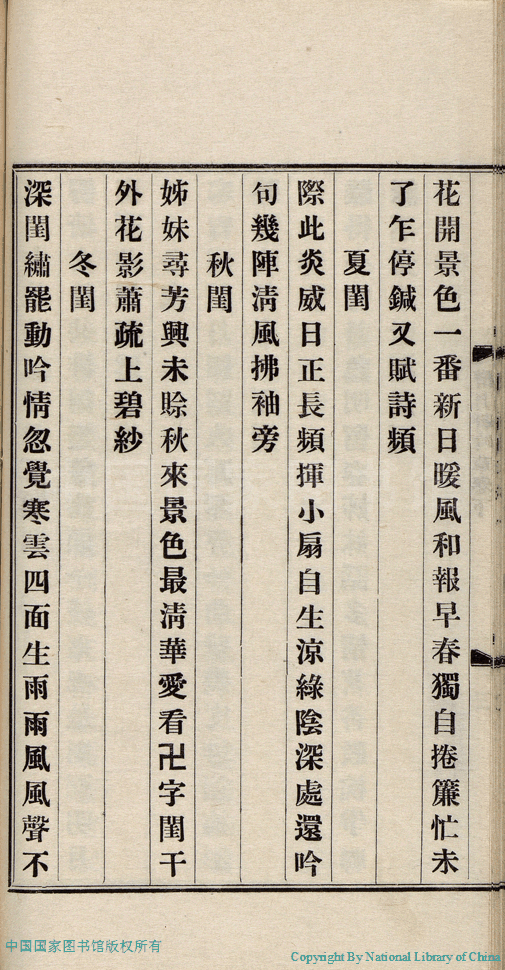 花開景色一番新日暖風和報早春獨自捲簾忙未
了乍停鍼又賦詩頻
夏閨
際此炎威日正長頻揮小扇自生涼綠陰深處還吟
句幾陣淸風拂袖旁
秋閨
姊妹尋芳興未賖秋來景色最淸華愛看卍字闌干
外花影蕭疏上碧紗
冬閨
深閨繡罷動吟情忽覺寒雲四面生雨雨風風聲不
中国国家图书馆版权所有
Copyright By National Library of China